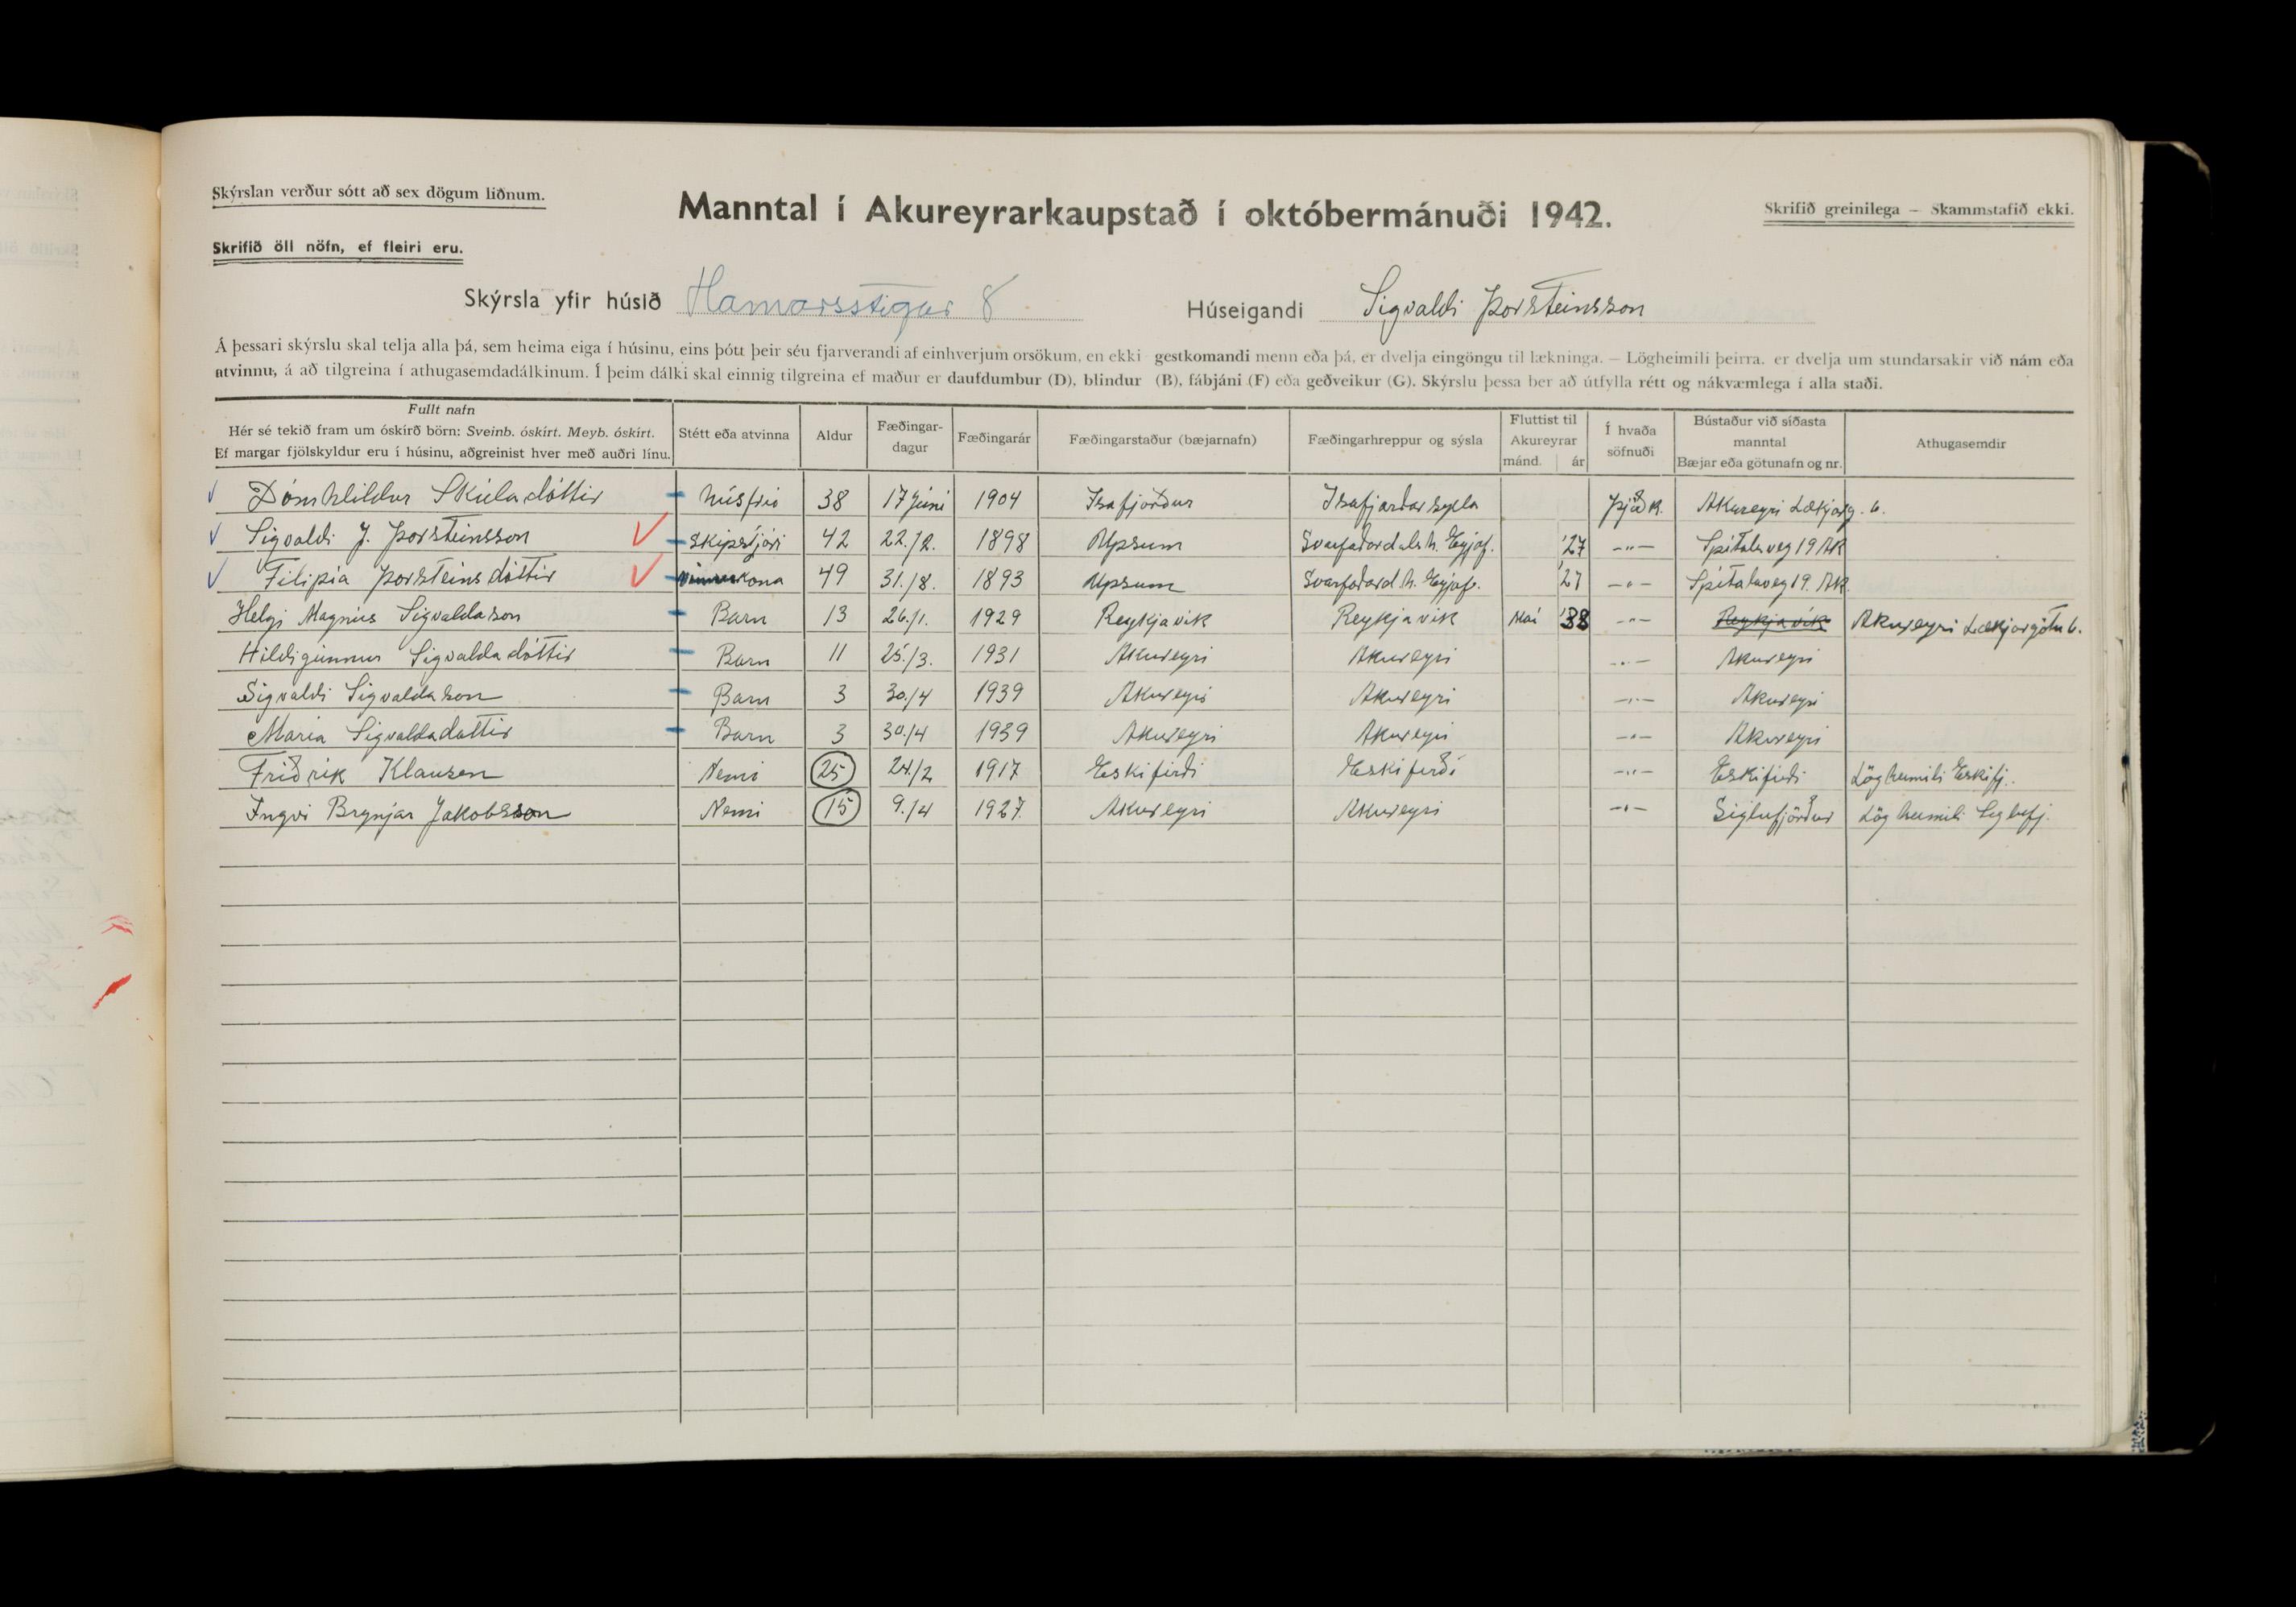 Skýrslan verður sótt að sex dögum liðnum.
Manntal í Akureyrarkaupstað í októbermánuði 1942.
Skrifið greinilega — Skammstafið ekki.
Skrifið öll nöfn, ef fleiri eru.
Skýrsla yfir húsið Hamarsstígur 8 Húseigandi Sigvaldi Þorsteinsson
Á þessari skýrslu skal telja alla þá, sem heima eiga í húsinu, eins þótt þeir séu fjarverandi af einhverjum orsökum, en ekki gestkomandi menn eða þá, er dvelja eingöngu til lækninga. — Lögheimili þeirra, er dvelja um stundarsakir við nám eða
atvinnu, á að tilgreina í athugasemdadálkinum. Í þeim dálki skal einnig tilgreina ef maður er daufdumbur (D), blindur (B), fábjáni (F) eða geðveikur (G). Skýrslu þessa ber að útfylla rétt og nákvæmlega í alla staði.
Fullt nafn
Hér sé tekið fram um óskírð börn: Sveinb. óskírt. Meyb. óskírt.
Ef margar fjölskyldur eru í húsinu, aðgreinist hver með auðri línu.
Stétt eða atvinna
Aldur
Fæðingar-
dagur
Fæðingarár
Fæðingarstaður (bæjarnafn)
Fæðingarhreppur og sýsla
Fluttist til
Akureyrar
mánd. ár
Í hvaða
söfnuði
Bústaður við síðasta
manntal
Bæjar eða götunafn og nr.
Athugasemdir
Dómhildur Skúladóttir húsfrú 38 17 júní 1904 Ísafjörður Ísafjarðarsýsla Þjóðk. Akureyri Lækjarg. 6.
Sigvaldi J. Þorsteinsson skipstjóri 42 22./12. 1898 Upsum Svarfaðardals.h. Eyjaf. '27 —"— Spítalaveg 19 AK
Filipía Þorsteinsdóttir vinnukona 49 31./8. 1893 Upsum Svarfaðard.h. Eyjaf. '27 —"— Spítalaveg 19. AK.
Helgi Magnús Sigvaldason Barn 13 26./1. 1929 Reykjavík Reykjavík Maí '38 —"— Reykjavík Akureyri Lækjargötu 6.
Hildigunnur Sigvaldadóttir Barn 11 25./3. 1931 Akureyri Akureyri —"— Akureyri
Sigvaldi Sigvaldason Barn 3 30./4 1939 Akureyri Akureyri —"— Akureyri
María Sigvaldadóttir Barn 3 30./4 1939 Akureyri Akureyri —"— Akureyri
Friðrik Klausen Nemi 25 24./2 1917 Eskifirði Eskifirði —"— Eskifirði Lögheimili Eskifj.
Ingvi Brynjar Jakobsson Nemi 15 9./4 1927. Akureyri Akureyri —"— Siglufjörður Lögheimili Siglufj.